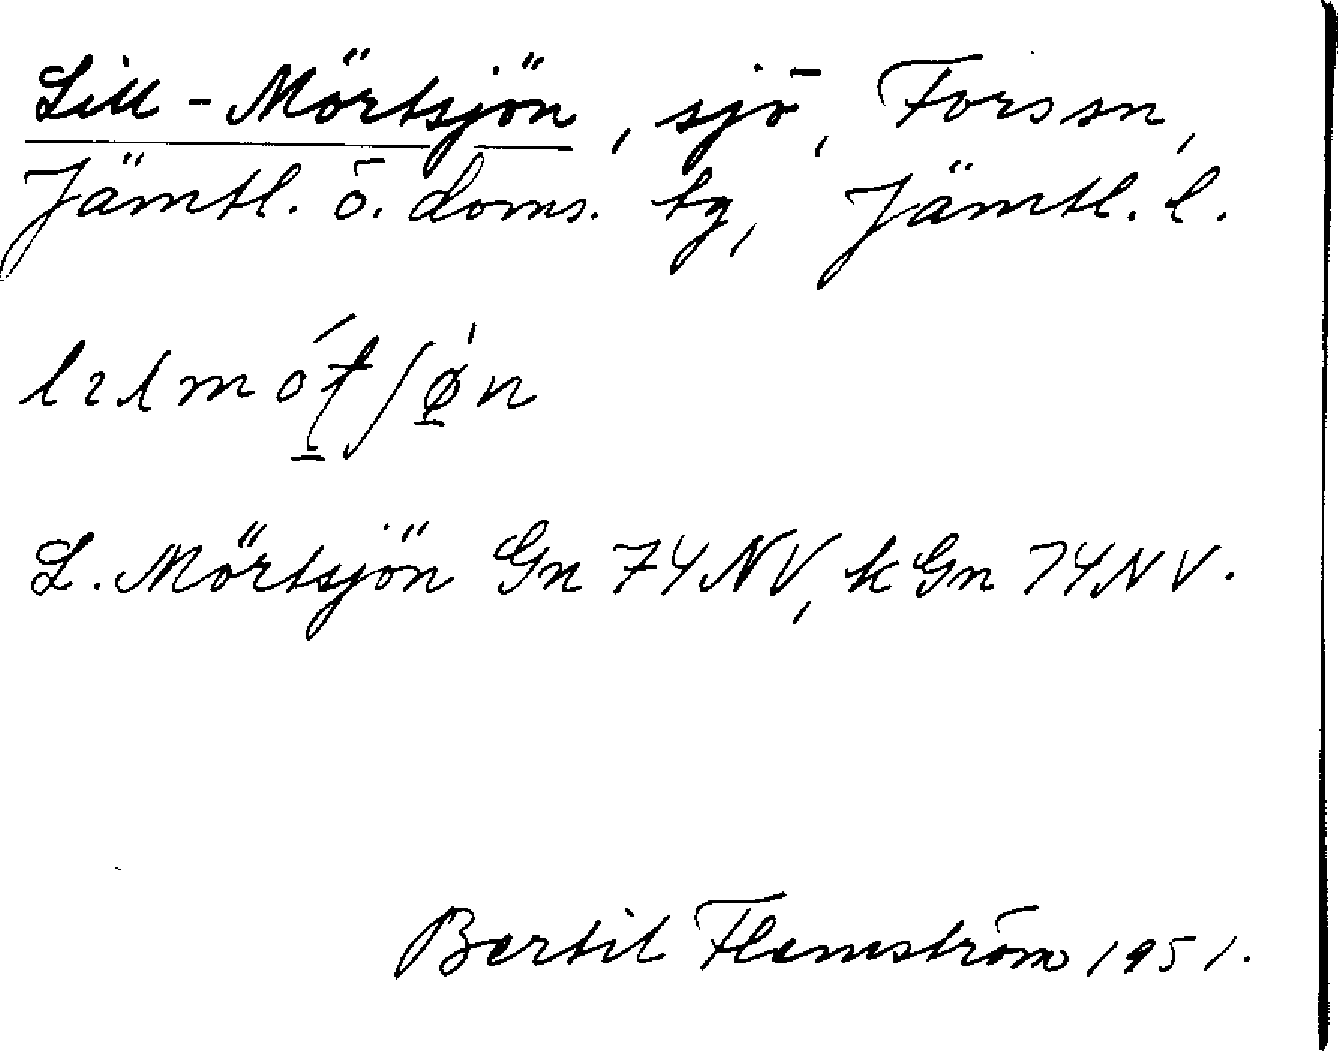 Lill-Mörtsjön, sjö, Fors sn,
Jämtl. ö. doms. tg, Jämtl. l.
L. Mörtsjön Gn 74NV, kGn 74NV.
Bertil Flemström 1951.